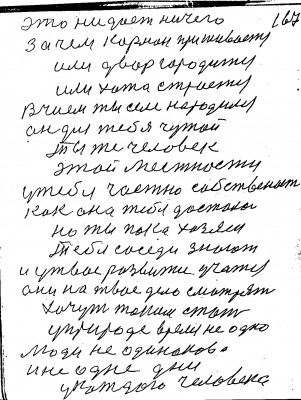 это ни дает ничего 167
зачем корнам приживает
или двор городит
или хата строет
в чием ты селе народился
он для тебя чужой
Ты же человек
этой местности
у тебя частно собственост
как она тебе достолос
но ты пока хозяен
Тебя соседи знают
и у твое развити учатся
они на твое дело смотрят
хочут таким стат
у природе время не одно
Люди не одинаково
и не одне дни
у каждого человека